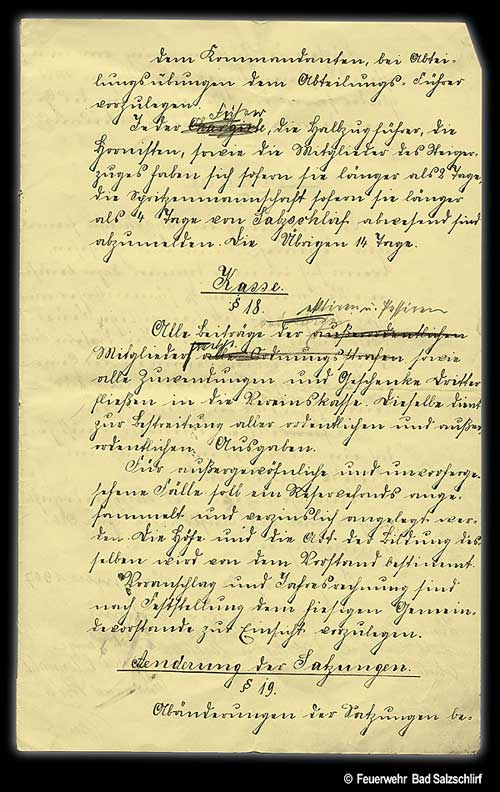 dem Kommandanten, bei Abtei-
lungsübungen dem Abteilungs-Führer
vorzulegen.
Führer
Jeder Chargirte, die Halbzugführer, die
Hornisten, sowie die Mitglieder des Steiger-
zuges haben sich sofern sie länger als 2 Tage,
die Spritzenmannschaft sofern sie länger
als 4 Tage von Salzschlirf abwesend sind
abzumelden. Die Übrigen 14 Tage.
Kasse.
§ 18.
aktiven u. Passiven
Alle Beiträge der außerordentlichen
Mitglieder, alle Ordnungsstrafen sowie
alle Zuwendungen und Geschenke Dritter
fließen in die Vereinskasse. Dieselbe dient
zur Bestreitung aller ordentlichen und außer-
ordentlichen Ausgaben.
Für außergewöhnliche und unvorherge-
sehene Fälle soll ein Reservefonds ange-
sammelt und verzinslich angelegt wer-
den. Die Höhe und die Art der Bildung des-
selben wird von dem Vorstand bestimmt.
Voranschlag und Jahresrechnung sind
nach Feststellung dem hiesigen Gemein-
devorstande zur Einsicht vorzulegen.
Aenderung der Satzungen.
§ 19.
Abänderungen der Satzungen be-
© Feuerwehr Bad Salzschlirf